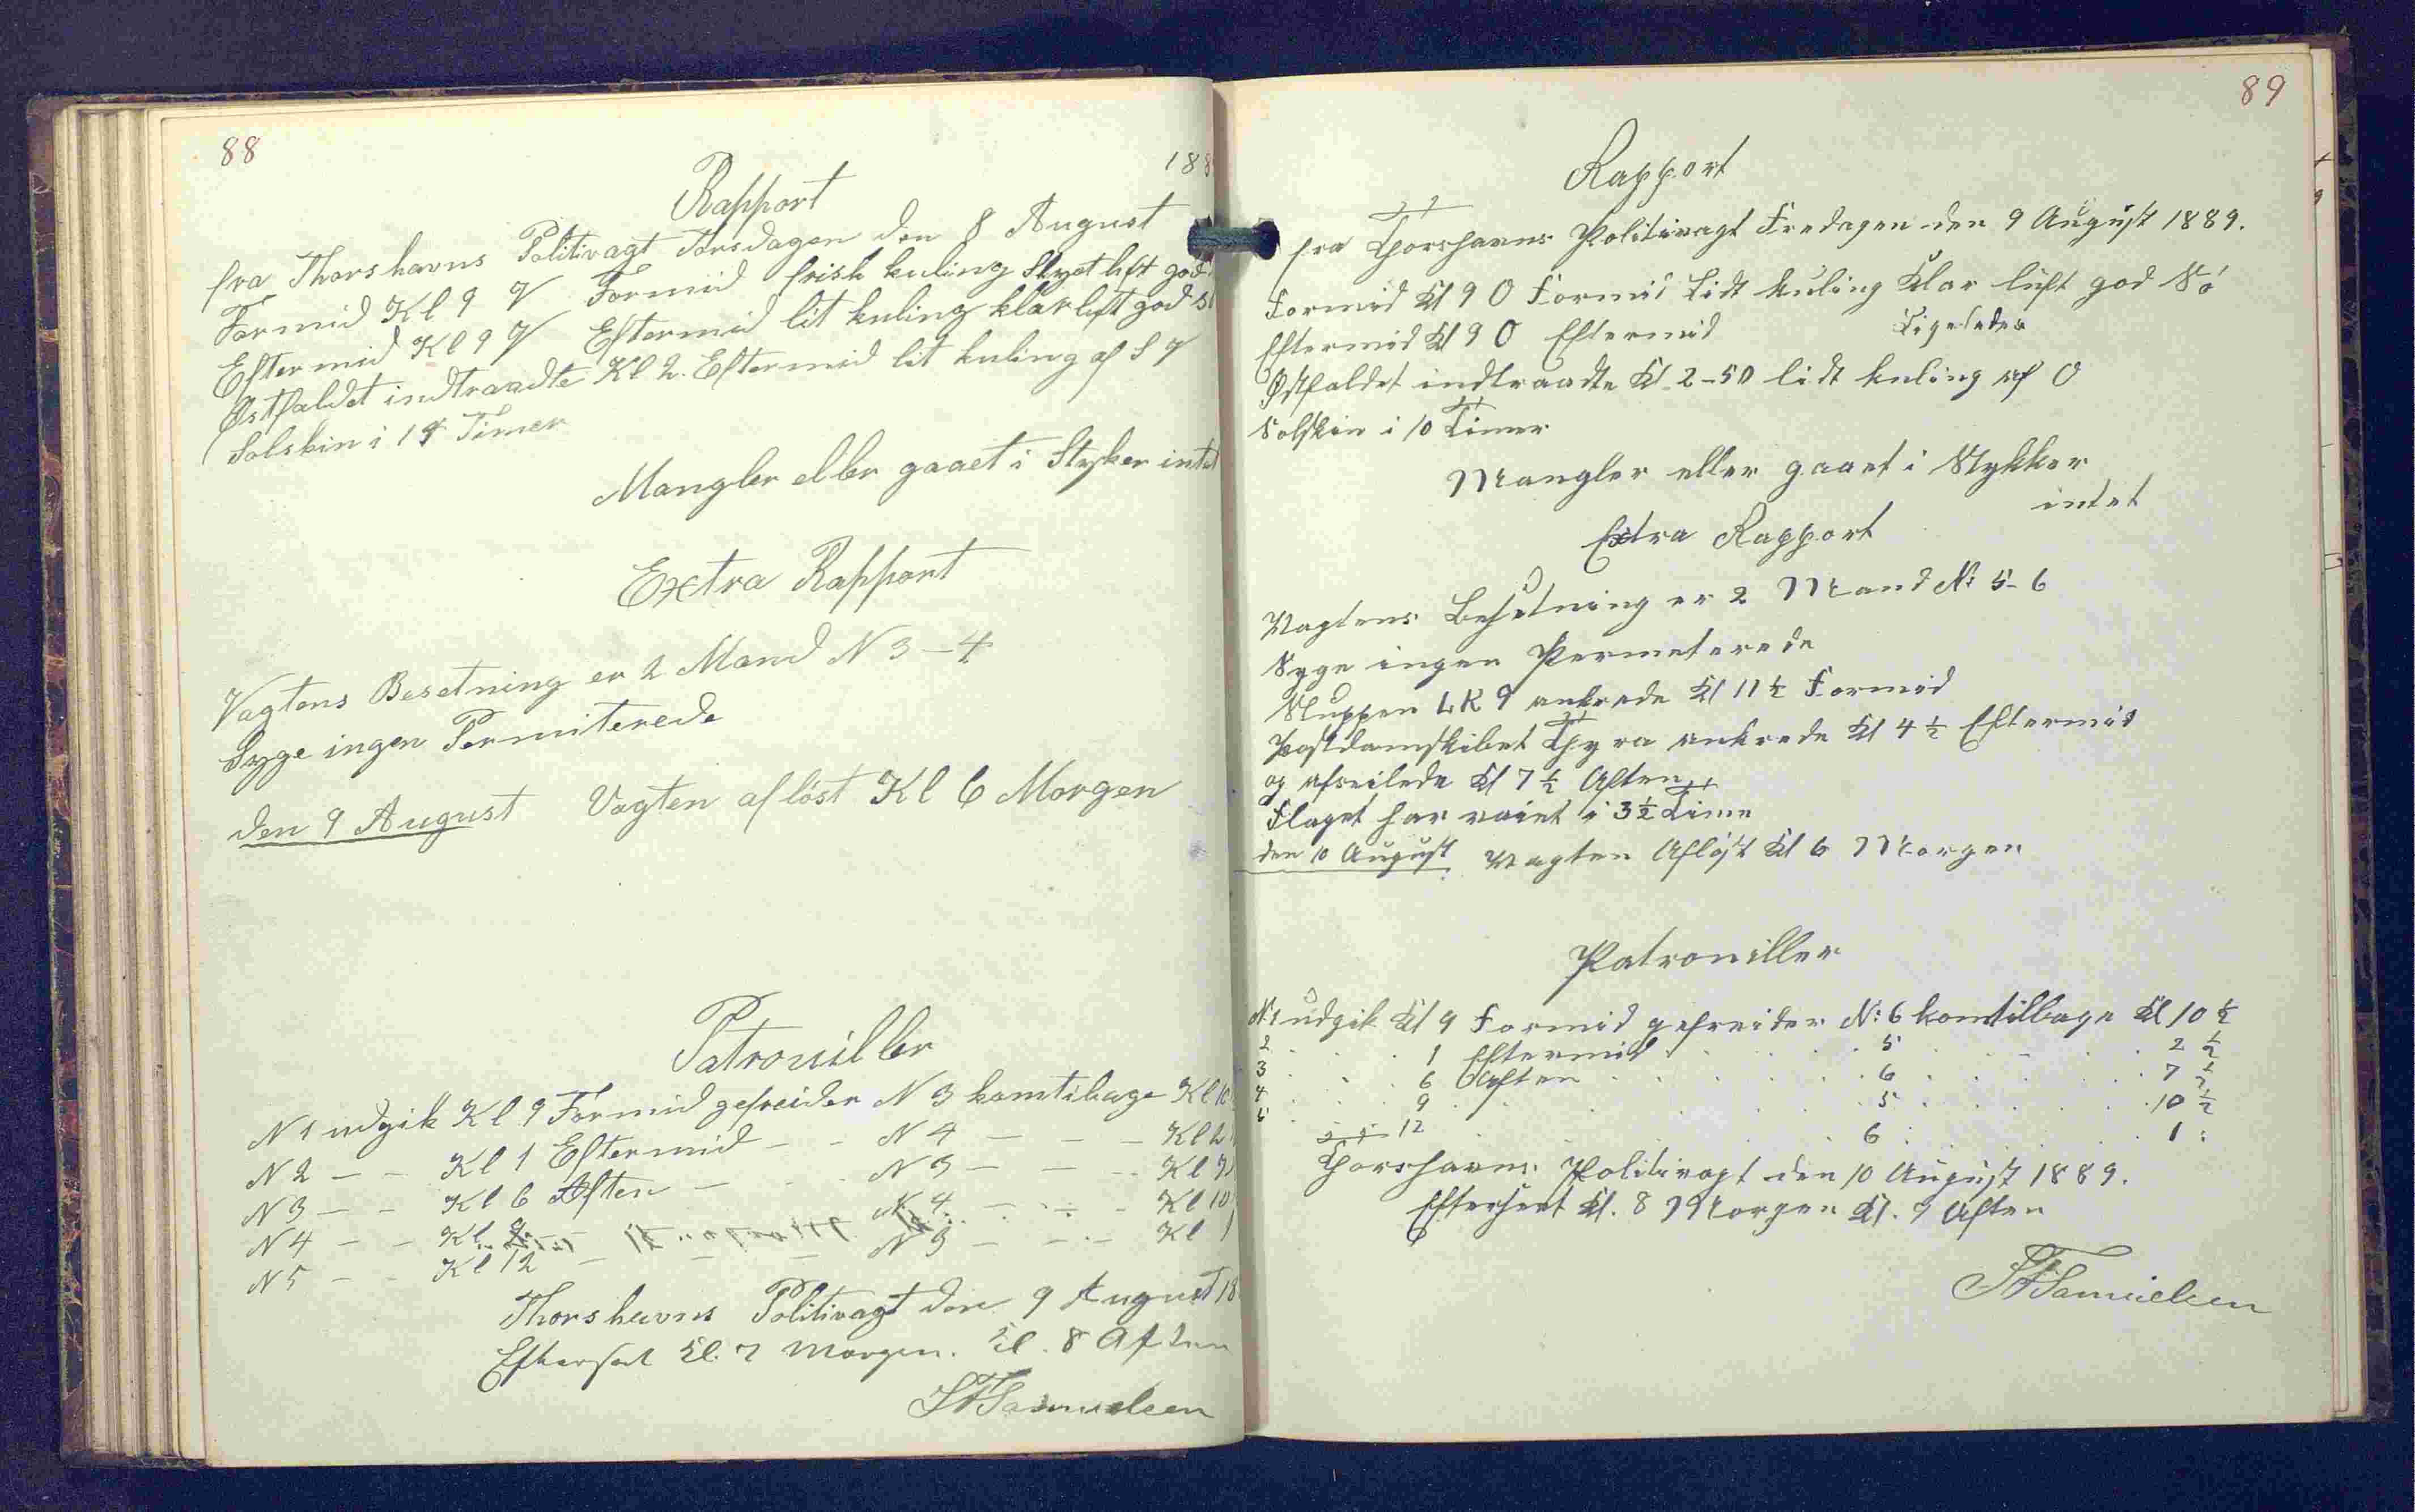 88
188
Rapport
fra Thorshavns Politivagt Torsdagen den 8 August
Formid Kl 9 V Formid frisk kuling Skyet luft god
Eftermid Kl 9 V Eftermid lit kuling klar luft god
Østfaldet indtraadte Kl 2. Eftermid lit kuling af S V
Solskin i 14 Timer
Mangler eller gaaet i Styker intet
Extra Rapport
Vagtens Besetning er 2 Mand N 3 - 4
Syge ingen Permiterede
den 9 August Vagten afløst Kl 6 Morgen
Patrouiller
N 1 udgik Kl 9 Formid gefreider N 3 komtibage Kl 10
N 2 - - Kl 1 Eftermid - - N 4 - - - Kl 2
N 3 - - Kl 6 Aften - - N 3 - - - Kl 7
N 4 - - Kl 9 - - - N 4 - - - Kl 10
N 5 - - Kl 12 - - - N 3 - - - Kl 1
Thorshavns Politivagt den 9 August 18
Efterseet Kl. 7 Morgen. Kl. 8 Aften
Samuelsen
89
Rapport
fra Thorshavns Politivagt Fredagen den 9 August 1889.
Formid Kl 9 O Formid Lidt kuling Klar luft god Sö
Eftermid Kl 9 O Eftermid Ligeledes
Østfaldet indtraadte Kl 2-50 lidt kuling af O
Solskin i 10 Timer
Mangler eller gaaet i Stykker
intet
Extra Rapport
Vagtens Besetning er 2 Mand N: 5-6
Syge ingen Permeterede
Sluppen LK 9 ankrede Kl 11 ½ Formid
Postdamskibet Thyra ankrede Kl 4 ½ Eftermid
og afseilede Kl 7 ½ Aften
Flaget har vaiet i 3 ½ Time
den 10 August Vagten Afløst Kl 6 Morgen
Patrouiller
N: 1 udgik Kl 9 Formid gefreider N: 6 komtilbage Kl 10 ½
2 . . . 1 Eftermid . . . . 5 . . . . 2 ½
3 . . . 6 Aften . . . . 6 . . . . 7 ½
4 . . . 9 . . . . 5 . . . . 10 ½
5 . . . 12 . . . . 6 . . . . 1 :
Thorshavns Politivagt den 10 August 1889.
Efterseet Kl. 8 Morgen Kl. 9 Aften
Samuelsen